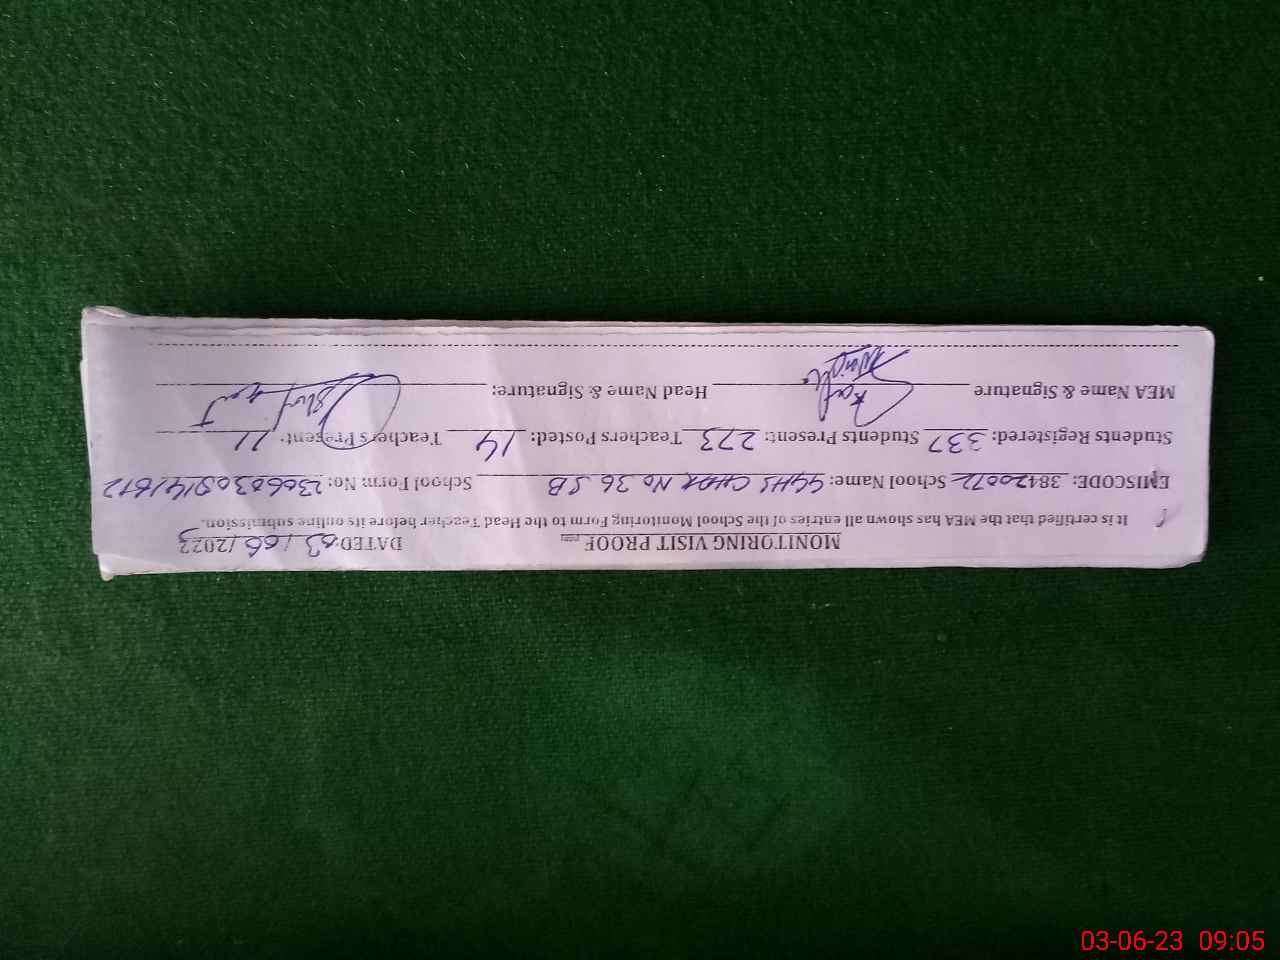 MONITORING VISIT PROOF DATED: 03/06/2023
It is certified that the MEA has shown all entries of the School Monitoring Form to the Head Teacher before its online submission.
EMISCODE: 38420072 School Name: GGHS CHAK No 36 SB School Form No:
Students Registered: 337 Students Present: 273 Teachers Posted: 14 Teachers Present: 11
MEA Name & Signature Head Name & Signature:
03-06-23 09:05